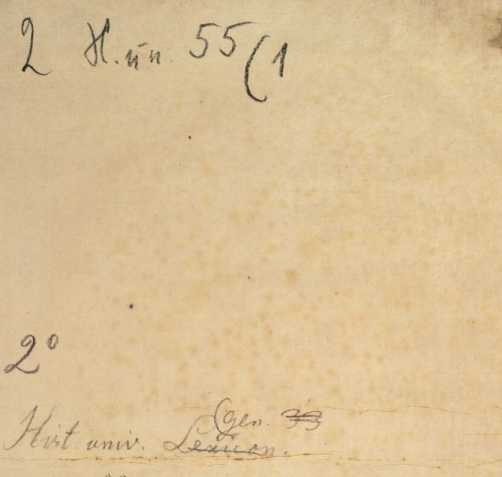 2 H. un. 55(1
2°
(gen.
Hist. univ. Lexicon.